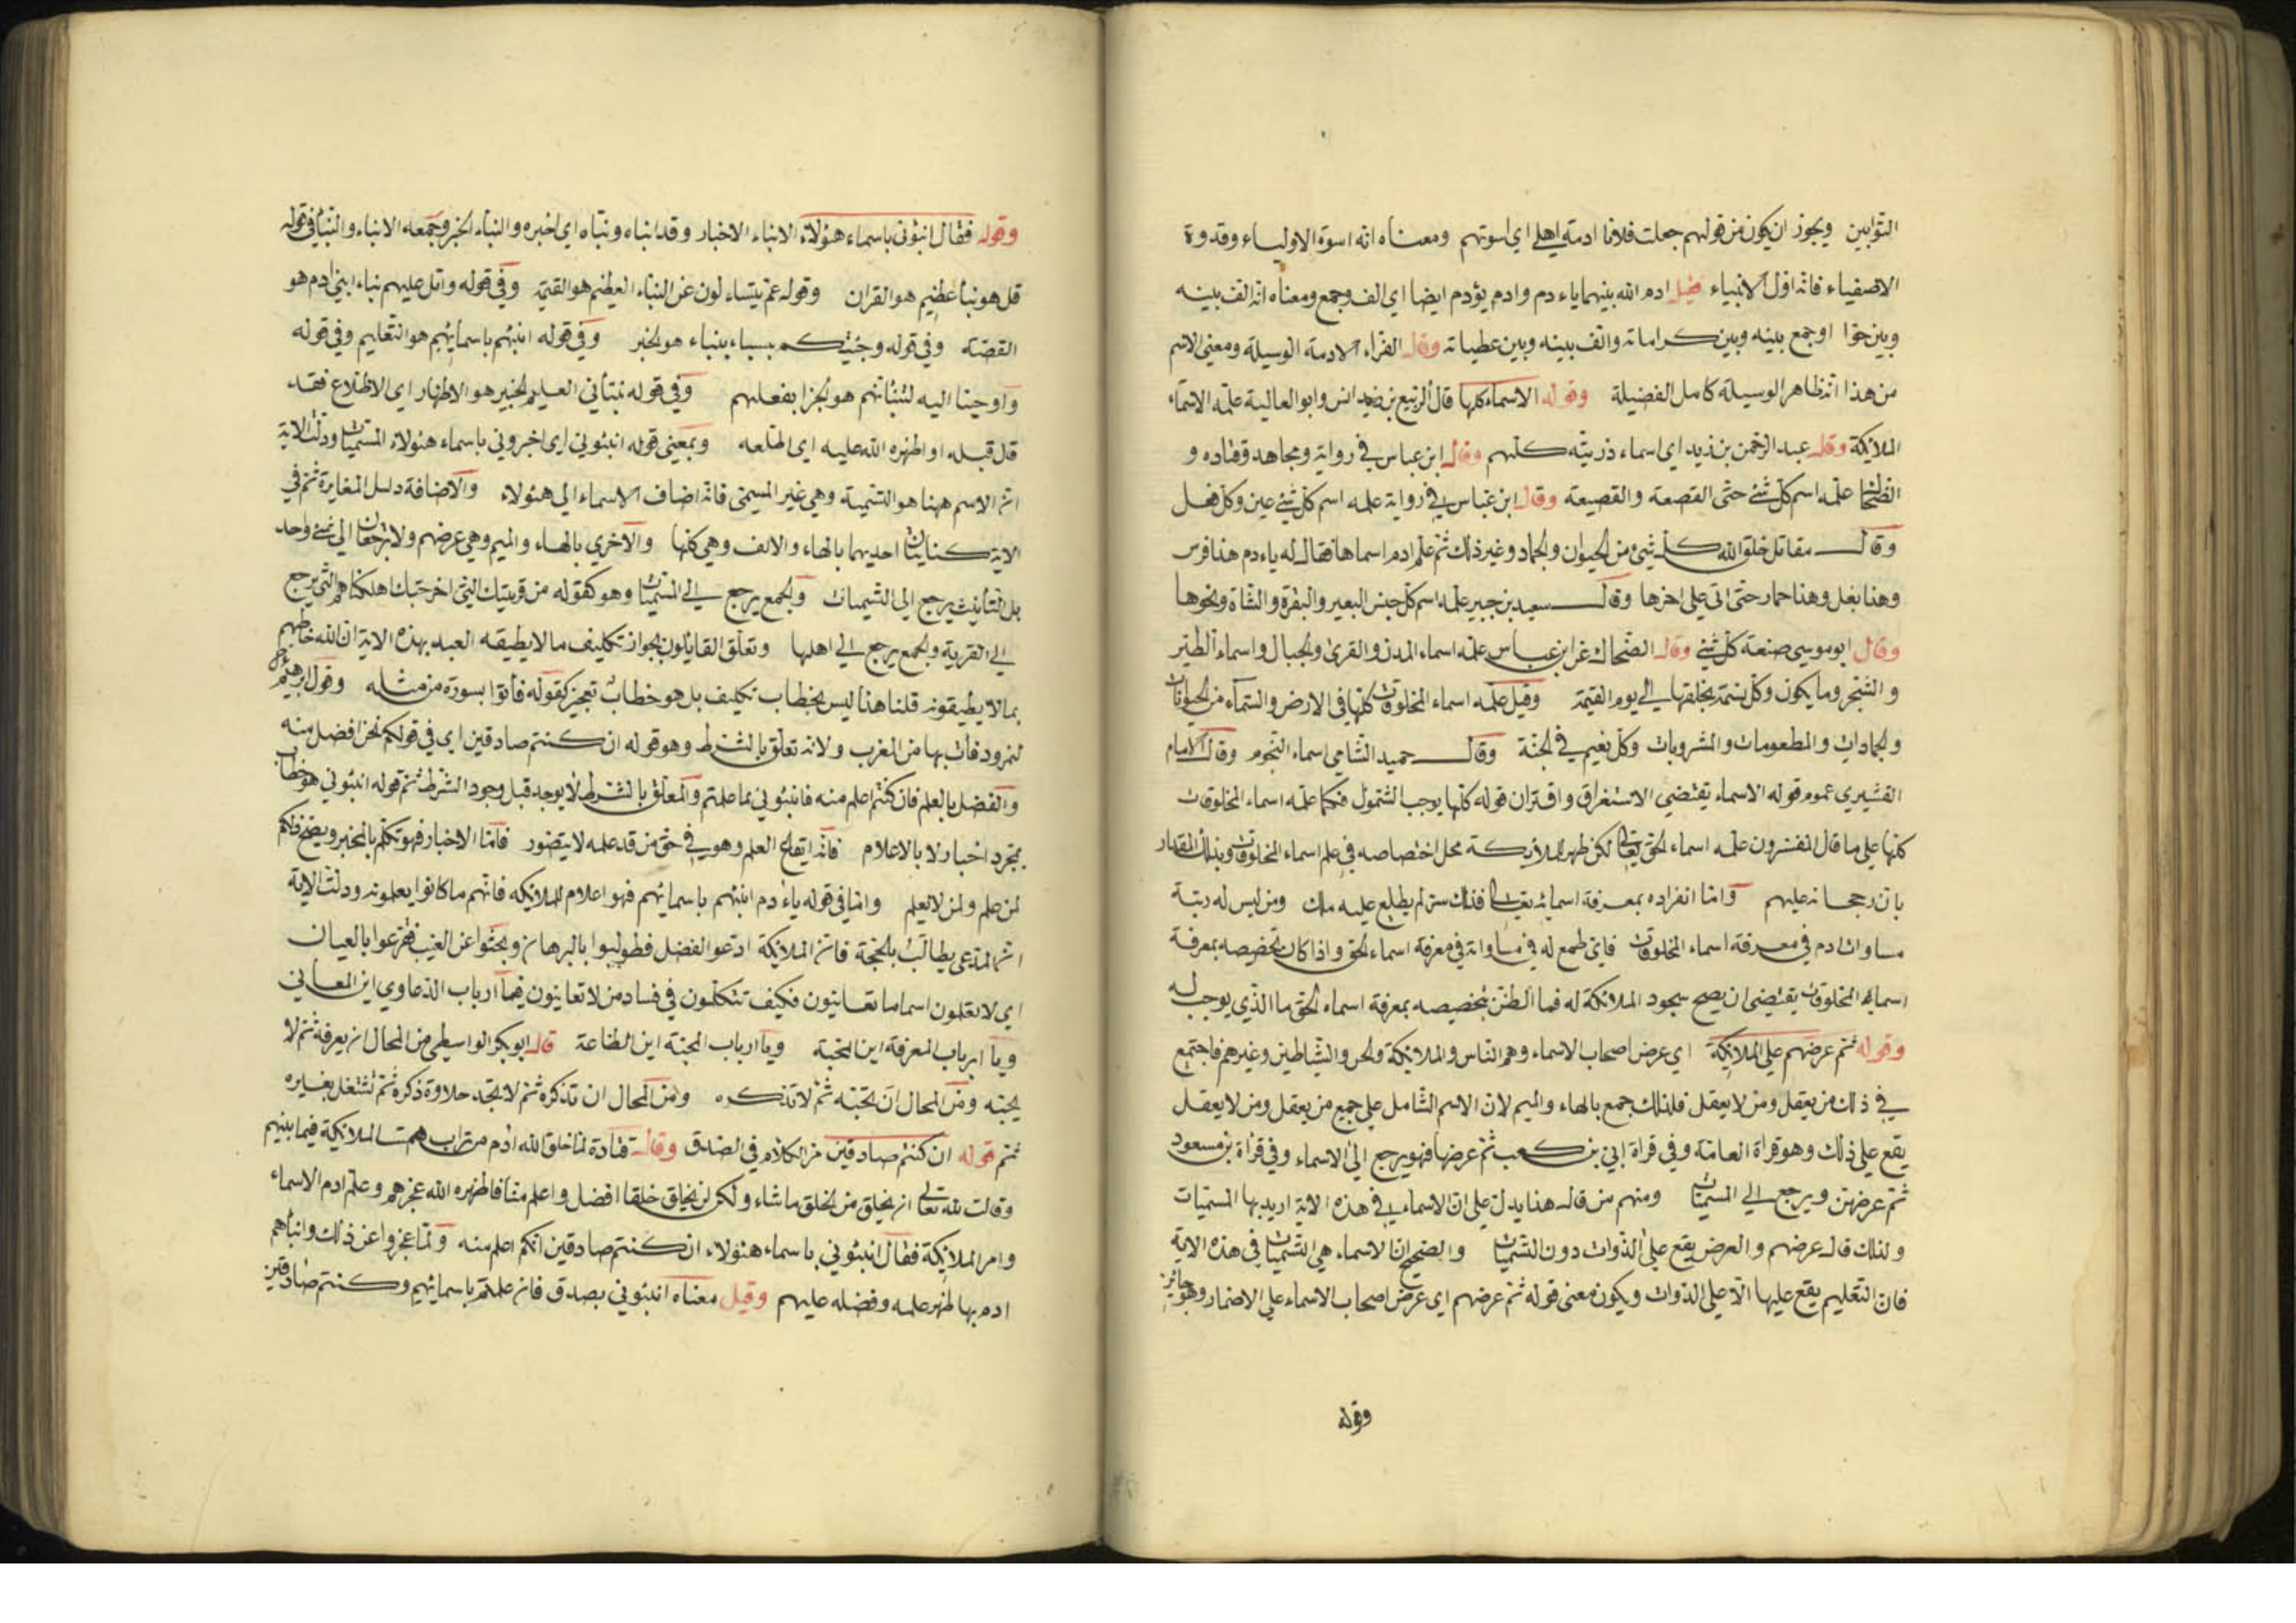 التوابين ويجوز ان يكون من قولهم جعلت فلانا ادمة اهلي اي اسوتهم ومعناه انه اسوة الاولياء وقدوة
الاصفياء فانه اول الانبياء قيل ادم الله بينهما ياءدم وادم يؤدم ايضا اي الف وجمع ومعناه انه الف بينه
وبين حوّا اوجمع بينه وبين كراماته والف بينه وبين عطياته وقال الفراء الادمة الوسيلة ومعنى الاسم
من هذا انه ظاهر الوسيلة كامل الفضيلة وقوله الاسماء كلها قال الربيع بن انس وابو العالية علمه الاسماء
الملائكة وقال عبد الرحمن بن زيد اي اسماء ذريته كلهم وقال ابن عباس في رواية ومجاهد وقتاده و
الضحاك علمه اسم كل شئ حتى القصعة والقصيعة وقال ابن عباس في رواية علمه اسم كل شئ عين وكل فعل
وقال مقاتل خلق الله كل شئ من الحيوان والجماد وغير ذلك ثم علم ادم اسماها فقال له ياءدم هذا فرس
وهذا بغل وهذا حمار حتى اتى على اخرها وقال سعيد بن جبير علمه اسم كل جنس البعير والبقرة والشاة ونحوها
وقال ابو موسى صنعة كل شئ وقال الضحاك عن ابن عباس علمه اسماء المدن والقرى والجبال واسماء الطير
والشجر وما يكون وكل نسمة يخلقها الى يوم القيمة وقيل علمه اسماء المخلوقات كلها في الارض والسماء من الحيوانات
والجمادات والمطعومات والمشروبات وكل نعيم في الجنة وقال حميد الشامي اسماء النجوم وقال الامام
القشيري عموم قوله الاسماء يقتضي الاستغراق واقتران قوله كلها يوجب الشمول فكما علمه اسماء المخلوقات
كلها على ما قال المفسرون علمه اسماء الحق تعالى لكن ظهر للملائكة محل اختصاصه في علم اسماء المخلوقات وبذلك المقدار
بان رجحانه عليهم واما انفراده بمعرفة اسمائه تعالى فذلك سر لم يطلع عليه ملك ومن ليس له رتبة
مساواة ادم في معرفة اسماء المخلوقات فاي طمع له في مساواته في معرفة اسماء الحق واذا كان تخصيصه بمعرفة
اسماء المخلوقات يقتضي ان يصح سجود الملائكة له فما الظن بتخصيصه بمعرفة اسماء الحق ما الذي يوجب له
وقوله ثم عرضهم على الملائكة اي عرض اصحاب الاسماء وهم الناس والملائكة والجن والشياطين وغيرهم فاجتمع
في ذلك من يعقل ومن لا يعقل فلذلك جمع بالهاء والميم لان الاسم الشامل على جميع من يعقل ومن لا يعقل
يقع على ذلك وهو قراة العامة وفي قراة ابي بن كعب ثم عرضها فهو يرجع الى الاسماء وفي قراة بن مسعود
ثم عرضهن ويرجع الى المسميات ومنهم من قال هذا يدل على ان الاسماء في هذه الاية اريد بها المسميات
ولذلك قال عرضهم والعرض يقع على الذوات دون التسميات والصحيح ان الاسماء هي التسميات في هذه الاية
فان التعليم يقع عليها الا على الذوات ويكون معنى قوله ثم عرضهم اي عرض اصحاب الاسماء على الاضمار وهو جائز
وقوله
وقوله فقال انبئوني باسماء هئولاء الانباء الاخبار وقد انباه ونبّاه اي اخبره والنباء الخبر وجمعه الانباء والنبأ في قوله
قل هو نبأ عظيم هو القران وقوله عم يتساءلون عن النباء العظيم هو القيمة وفي قوله واتل عليهم نباء ابني ادم هو
القصة وفي قوله وجئتك من سباء بنباء هو الخبر وفي قوله انبئهم باسمائهم هو التعليم وفي قوله
واوحينا اليه لتنبأنهم هو الجزا بفعلهم وفي قوله نبأني العليم الخبير هو الاظهار اي الاطلاع فقد
قال قبله اواظهره الله عليه اي اطلعه وبمعنى قوله انبئوني اي اخبروني باسماء هئولاء المسميات ودلت الاية
ان الاسم ههنا هو التسمية وهي غير المسمى فانه اضاف الاسماء الى هئولاء والاضافة دليل المغايرة ثم في
الاية كنايتان احديهما بالهاء والالف وهي كلها والاخرى بالهاء والميم وهي عرضهم ولا ترجعان الى شئ واحد
بل التأنيث يرجع الى التسميات والجمع يرجع الى المسميات وهو كقوله من قريتك التي اخرجتك اهلكناهم التي يرجع
الى القرية والجمع يرجع الى اهلها وتعلق القايلون بجواز تكليف ما لا يطيقه العبد بهذه الاية ان الله خاطبهم
بما لا يطيقونه قلنا هذا ليس بخطاب تكليف بل هو خطاب تعجيز كقوله فأتوا بسورة من مثله وقول ابرهيم
لنمرود فأت بها من المغرب ولانه تعلق بالشرط وهو قوله ان كنتم صادقين اي في قولكم نحن افضل منه
والفضل بالعلم فان كنتم اعلم منه فانبئوني بما علمتم والمعلق بالشرط لا يوجد قبل وجود الشرط ثم قوله انبئوني هو خطاب
بمجرد اخبار لا بالاعلام فانه ايقاع العلم وهو في حق من قد علمه لا يتصور فاما الاخبار فهو تكلم بالمخبر ويصح ذلكم
لمن علم ولمن لا يعلم وانما في قوله ياءدم انبئهم باسمائهم فهو اعلام للملائكة فانهم ما كانوا يعلمونه ودلت الاية
ان المدعي يطالب بالحجة فان الملائكة ادعوا الفضل فطولبوا بالبرهان وبحثوا عن الغيب فقرعوا بالعيان
اي لا تعلمون اسما ما تعاينون فكيف تتكلمون في فساد من لا تعاينون فيا ارباب الدعاوي اين المعاني
ويا ارباب المعرفة اين المحبة ويا ارباب المحبة اين الطاعة قال ابو بكر الواسطي من المحال ان يعرفه ثم لا
يحبه ومن المحال ان تحبه ثم لا تذكره ومن المحال ان تذكره ثم لا تجد حلاوة ذكره ثم تشتغل بغيره
ثم قوله ان كنتم صادقين من الكلام في الصدق وقال قتادة لما خلق الله ادم من تراب همت الملائكة فيما بينهم
وقالت لله تعالى ان يخلق من الخلق ما شاء ولكن لن يخلق خلقا افضل واعلم منا فاظهره الله عجزهم وعلم ادم الاسماء
وامر الملائكة فقال انبئوني باسماء هئولاء ان كنتم صادقين انكم اعلم منه ولما عجزوا عن ذلك وانبأهم
ادم بها ظهر علمه وفضله عليهم وقيل معناه انبئوني بصدق فان علمتم باسمائهم وكنتم صادقين